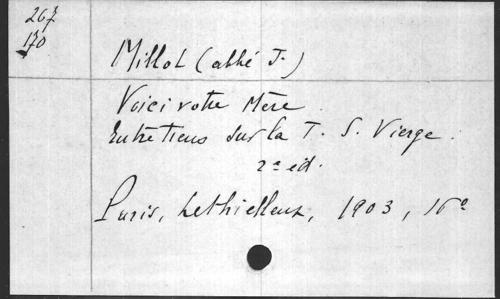 267
170
Millot (abbé J.)
Voici votre Mère
Entretiens sur la T. S. Vierge.
2e éd.
Paris, Lethielleux, 1903, 16o